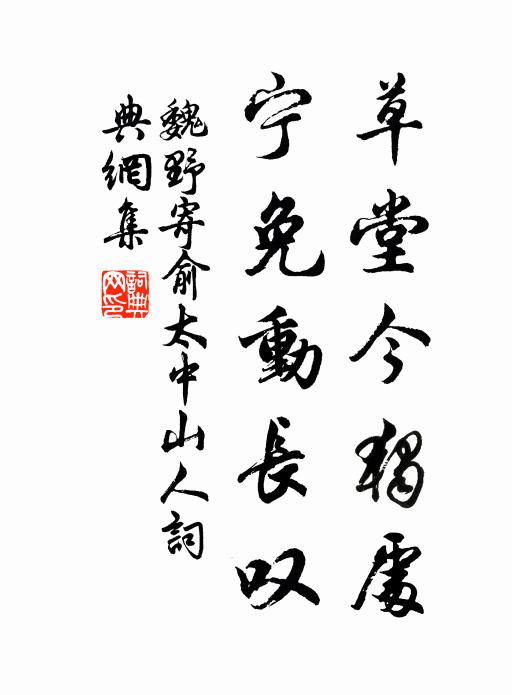 草堂今獨處
宁免動長叹
魏野寄俞太中山人詞
典網集
詞典网印